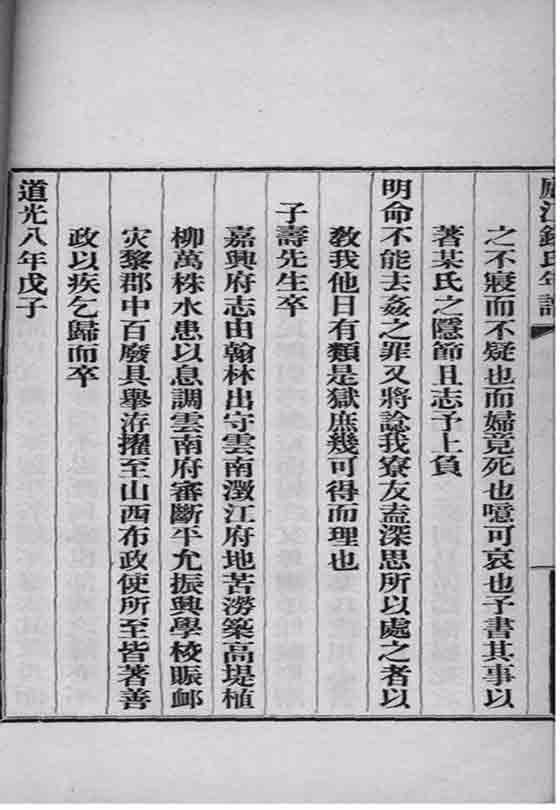 廬江錢氏年譜
之不寢而不疑也而婦竟死也噫可哀也予書其事以
著某氏之隱節且志予上負
明命不能去姦之罪又將諗我寮友盍深思所以處之者以
教我他日有類是獄庶幾可得而理也
子壽先生卒
嘉興府志由翰林出守雲南澂江府地苦澇築高堤植
柳萬株水患以息調雲南府審斷平允振興學校賑卹
灾黎郡中百廢具舉洊擢至山西布政使所至皆著善
政以疾乞歸而卒
道光八年戊子